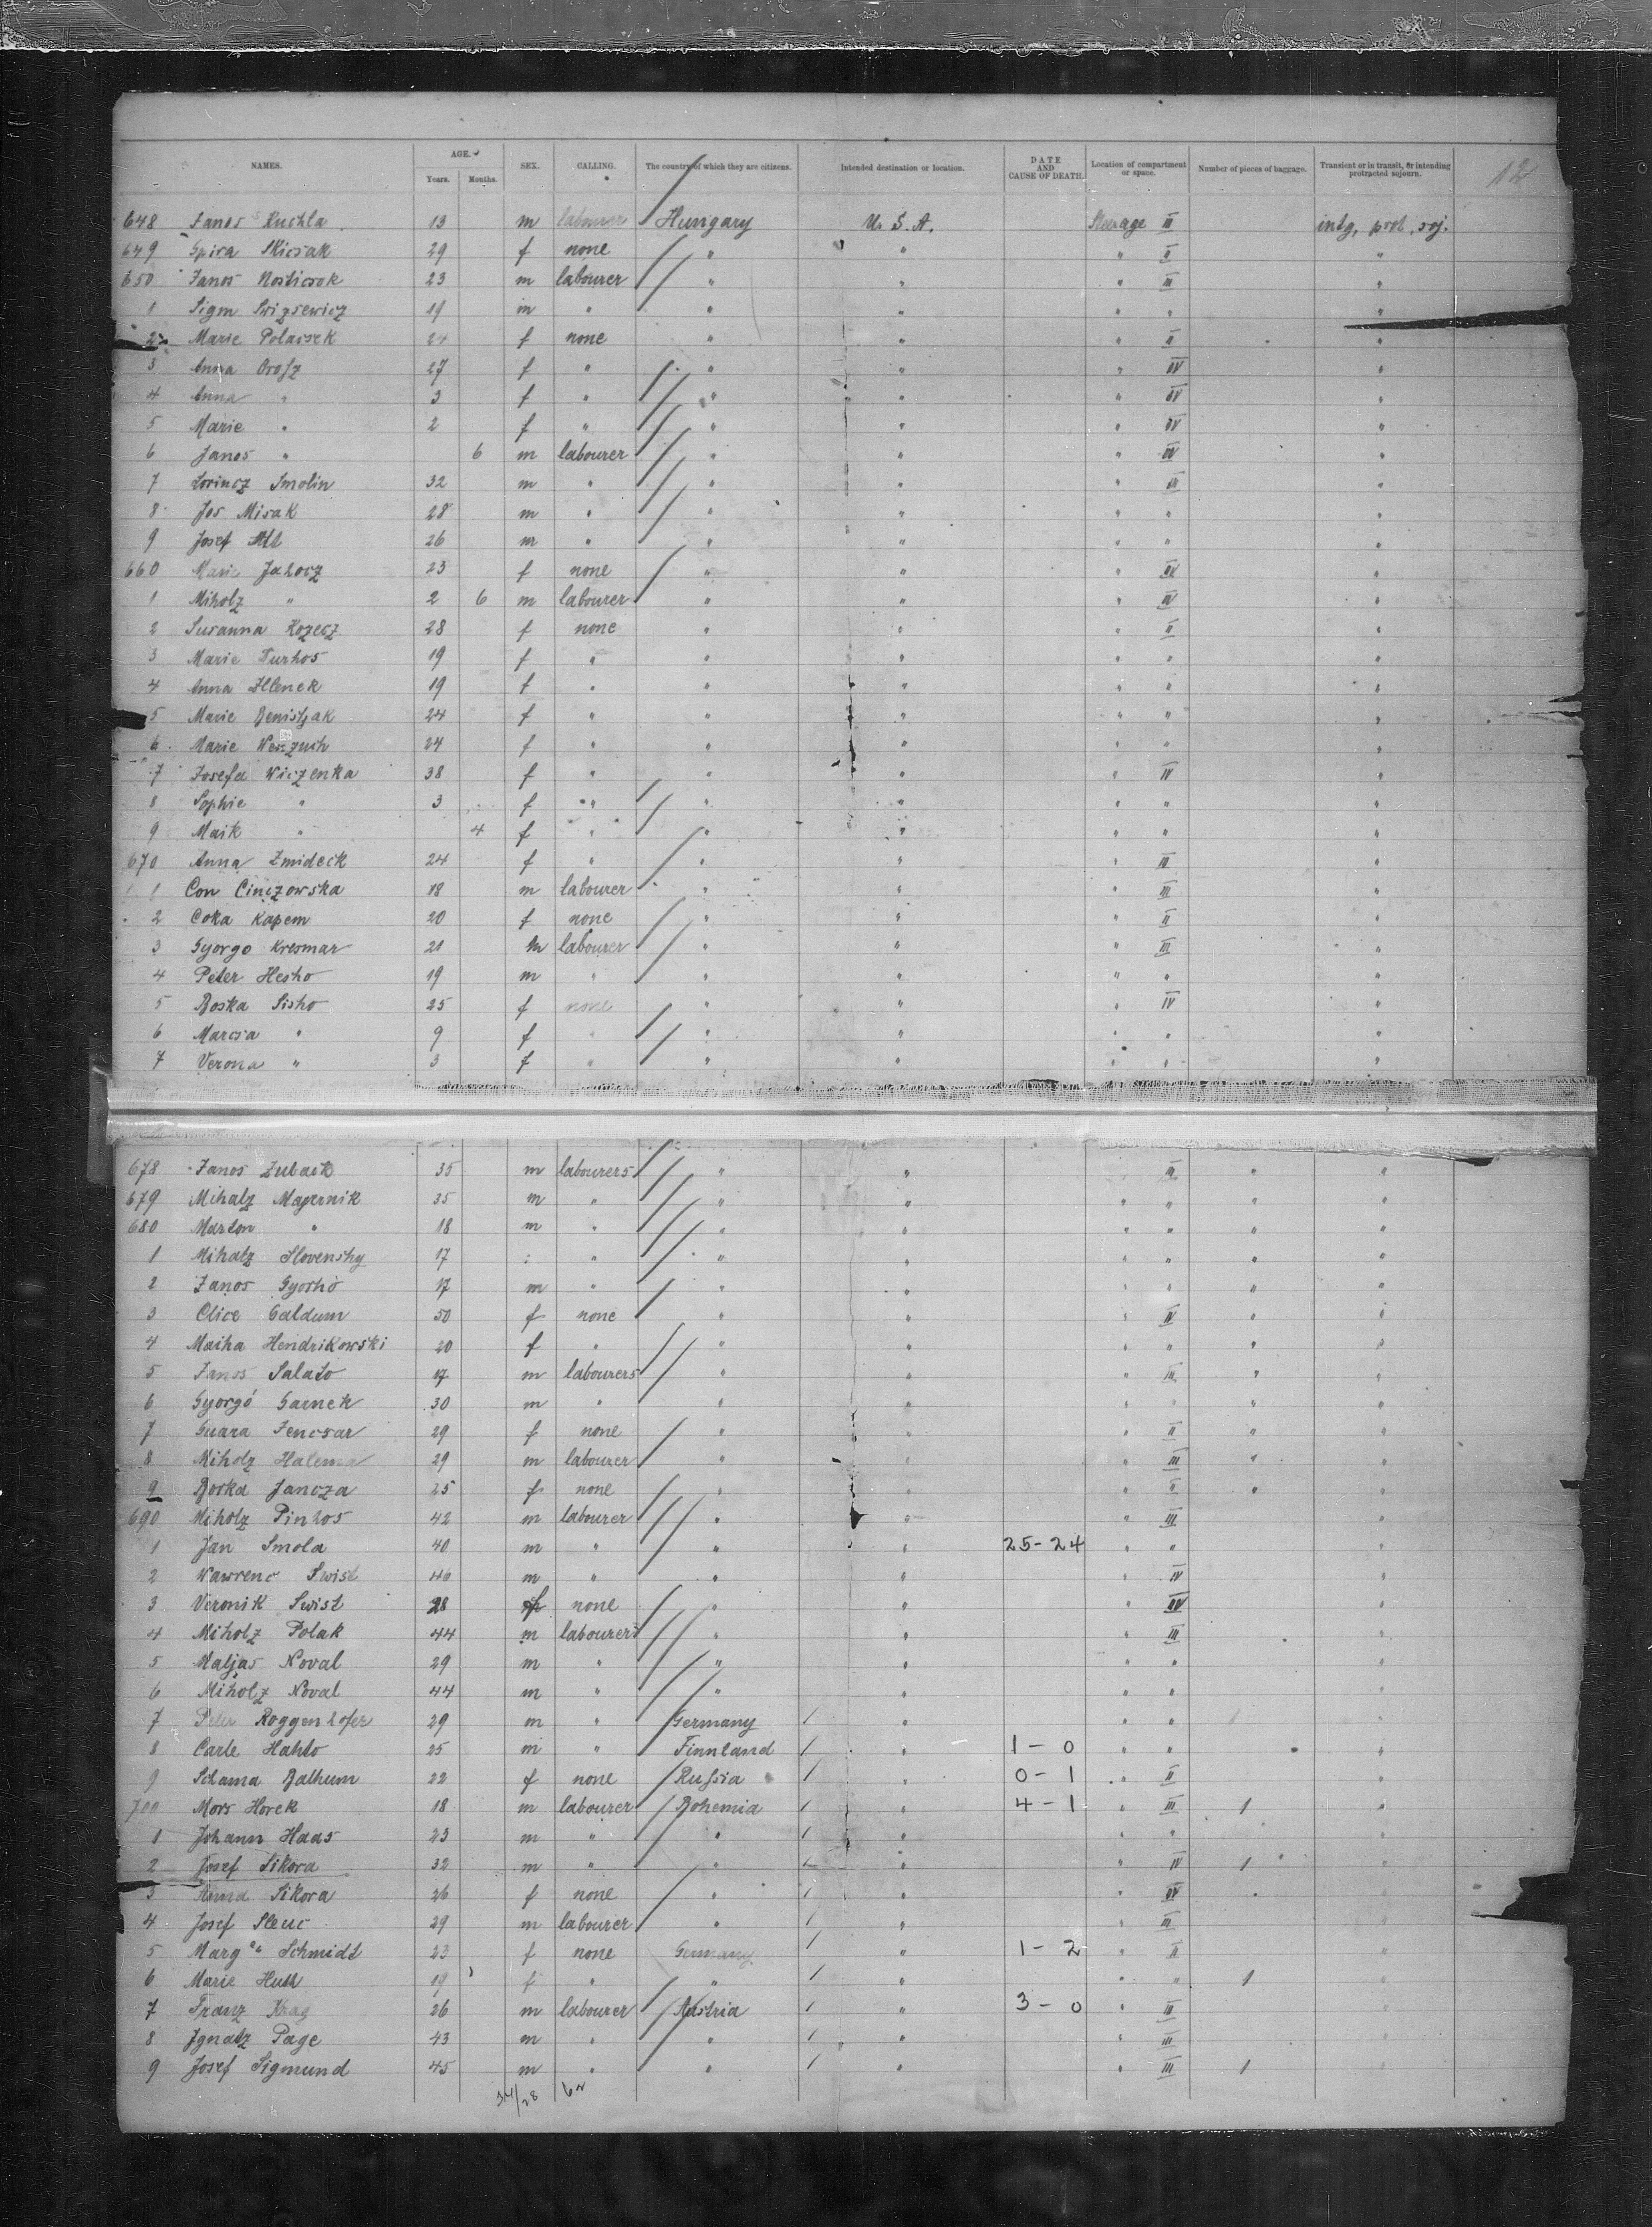 NAMES. AGE. Years. Months. SEX. CALLING. The country of which they are citizens. Intended destination or location. DATE AND CAUSE OF DEATH. Location of compartment or space. Number of pieces of baggage. Transient or in transit, or intending protracted sojourn. 12
648 Janos Kuchta 13 m labourer Hungary U. S. A. Steerage III intg. prot. soj.
649 Spira Skicsak 29 f none " " " II "
650 Janos Nosticsok 23 m labourer " " " III "
1 Sigm Swizsewicz 19 m " " " " " "
2 Marie Polaczek 24 f none " " " II "
3 Anna Orosz 27 f " " " " IV "
4 Anna " 3 f " " " " IV "
5 Marie " 2 f " " " " IV "
6 Janos " 6 m labourer " " " IV "
7 Lorincz Smolin 32 m " " " " III "
8 Jos Misak 28 m " " " " " "
9 Josef 26 m " " " " " "
660 Marie Jahocz 23 f none " " " IV "
1 Miholz " 2 6 m labourer " " " IV "
2 Susanna Kozecz 28 f none " " " II "
3 Marie Turhos 19 f " " " " " "
4 Anna Hlenek 19 f " " " " " "
5 Marie Benistzak 24 f " " " " " "
6 Marie 24 f " " " " " "
7 Josefa Wiczenka 38 f " " " " IV "
8 Sophie " 3 f " " " " " "
9 Maik " 4 f " " " " " "
670 Anna Zmideck 24 f " " " " III "
1 Con Cinizowska 18 m labourer " " " III "
2 Coka Kapem 20 f none " " " II "
3 Gyorgo Kresmar 21 m labourer " " " III "
4 Peter Hesho 19 m " " " " " "
5 Boska Sisho 25 f none " " " IV "
6 Marcsa " 9 f " " " " " "
7 Verona " 3 f " " " " " "
678 Janos Zuback 35 m labourers " " III " "
679 Mihalz Mapernik 35 m " " " " " " "
680 Marton " 18 m " " " " " " "
1 Mihalz Slovensky 17 : " " " " " " "
2 Janos Gyorho 17 m " " " " " " "
3 Clice Galdum 50 f none " " " IV " "
4 Maiha Hendrikowski 20 f " " " " " " "
5 Janos Salato 17 m labourers " " " III " "
6 Gyorgó Garnek 30 m " " " " " " "
7 Guara Fencsar 29 f none " " " II " "
8 Miholz Halema 29 m labourer " " " III " "
9 Borka Jancza 25 f none " " " II " "
690 Miholz Pinhos 42 m labourer " " " III "
1 Jan Smola 40 m " " " 25-24 " " "
2 Wawrenc Swist 46 m " " " " IV "
3 Veronik Swist 28 f none " " " IV "
4 Miholz Polak 44 m labourers " " " III "
5 Matjas Noval 29 m " " " " " "
6 Miholz Noval 44 m " " " " " "
7 Peter Roggenhofer 29 m " Germany / " " " "
8 Carle Hahto 25 m " Finnland / " 1-0 " " "
9 Schama Balhum 22 f none Russia / " 0-1 " II "
700 Mors Horek 18 m labourer Bohemia / " 4-1 " III 1 "
1 Johann Haas 23 m " " / " " " "
2 Josef Sikora 32 m " " / " " IV 1 "
3 Anna Sikora 26 f none " / " " IV "
4 Josef Sleuc 29 m labourer " / " " III "
5 Marg Schmidt 23 f none Germany / " 1-2 " II "
6 Marie Huth 19 f " " / " " " 1 "
7 Franz Krag 26 m labourer Austria / " 3-0 " III "
8 Ignatz Page 43 m " " / " " III "
9 Josef Sigmund 45 m " " / " " III 1 "
34/28 62